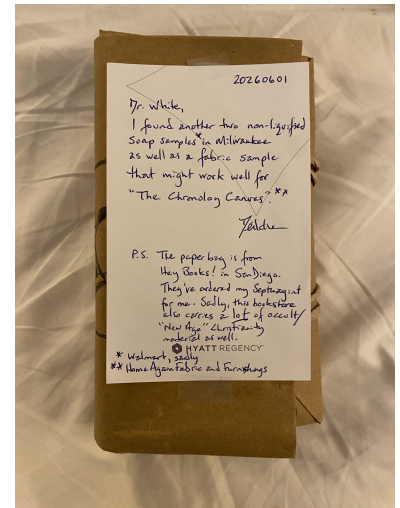 20260601
Mr. White,
I found another two non-liquified
soap samples* in Milwaukee
as well as a fabric sample
that might work well for
"The Chronolog Canvas".**
P.S. The paper bag is from
Hey Books! in San Diego.
They've ordered my Septuagint
for me. Sadly, this bookstore
also carries a lot of occult/
"New Age" Christianity
material as well.
HYATT REGENCY
* Walmart, sadly
** Home Again Fabric and Furnishings